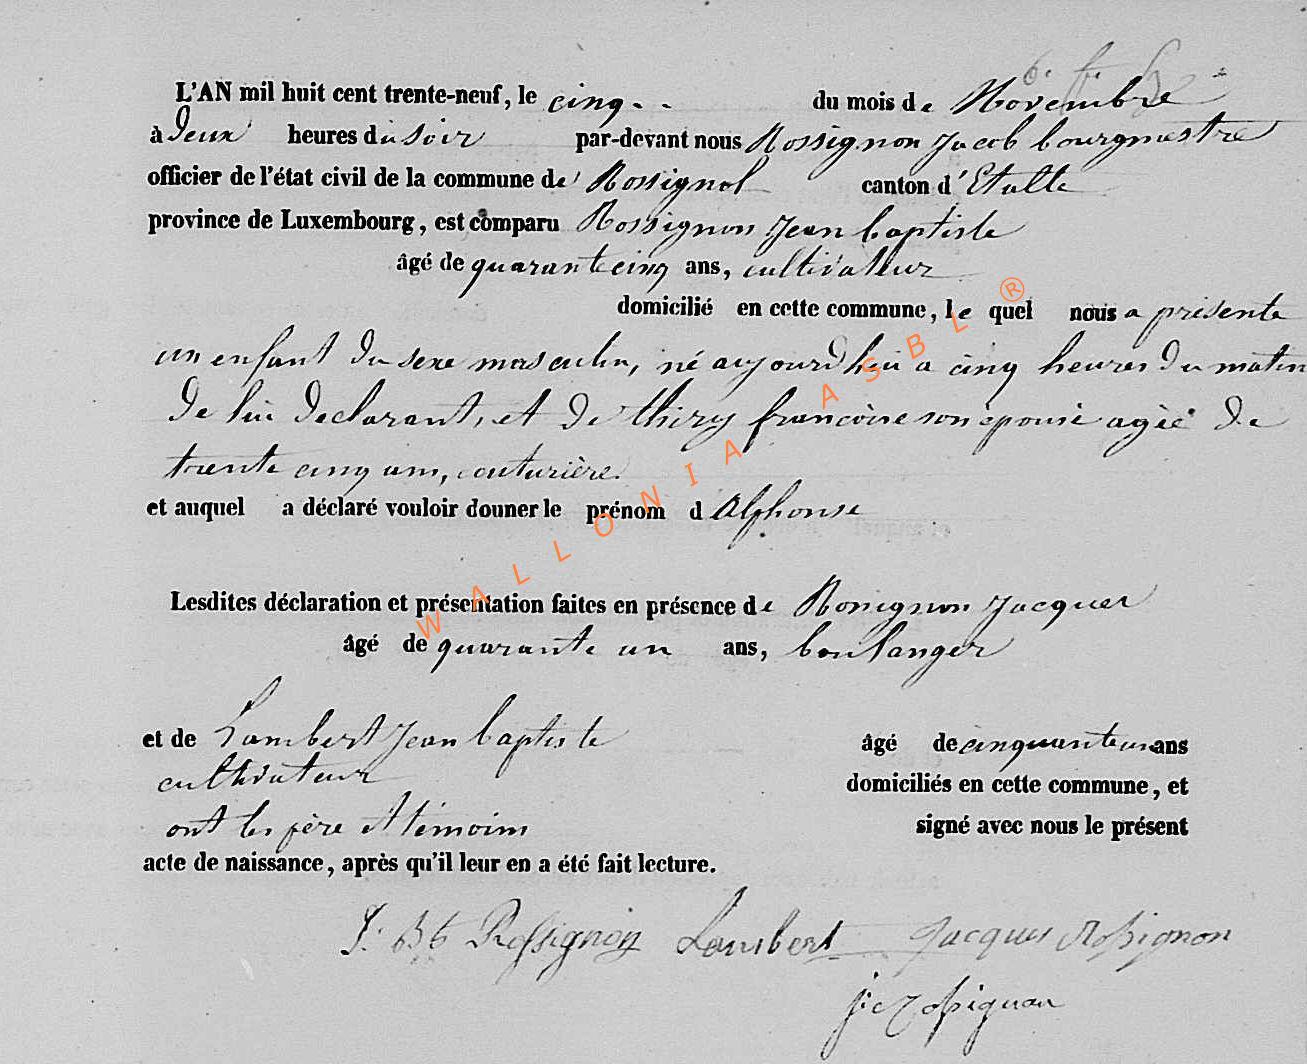 L'AN mil huit cent trente-neuf, le cinq du mois de Novembre
à Deux heures du soir par-devant nous Rossignon Jacob bourgmestre
officier de l'état civil de la commune de Rossignol canton d'Etalle
province de Luxembourg, est comparu Rossignon Jean baptiste
âgé de quarante cinq ans, cultivateur
domicilié en cette commune, le quel nous a présenté
un enfant du sexe masculin, né aujourd'hui a cinq heures du matin
de lui declarant, et de thiry francoise son épouse agée de
trente cinq ans, couturière.
et auquel a déclaré vouloir donner le prénom d Alphonse
Lesdites déclaration et présentation faites en présence de Rossignon Jacques
âgé de quarante un ans, boulanger
et de Lambert Jean baptiste âgé de cinquante un ans
cultivateur domiciliés en cette commune, et
ont les père et témoins signé avec nous le présent
acte de naissance, après qu'il leur en a été fait lecture.
J. Bte Rossignon Lambert Jacques Rossignon
j: Rossignon
WALLONIA ASBL ®